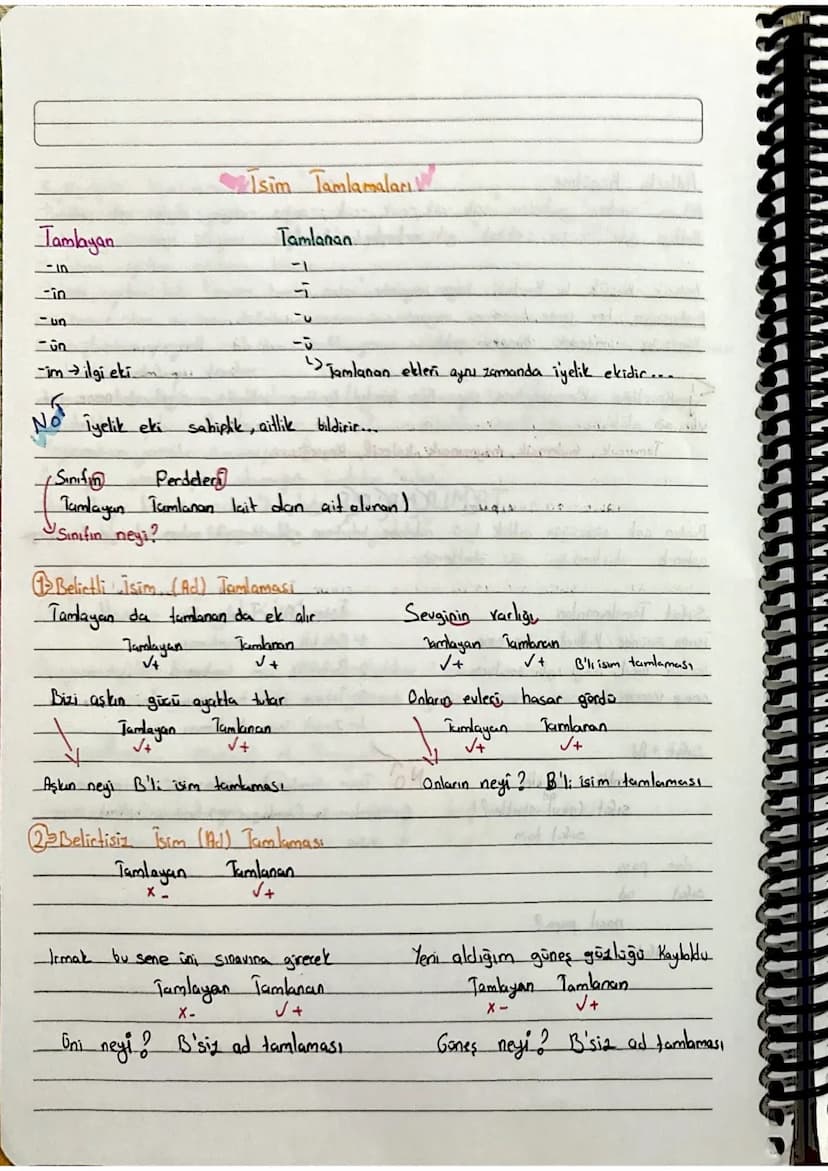 İsim Tamlamaları
Tamlayan Tamlanan
-ın -ı
-in -i
-un -u
-ün -ü
-im → ilgi eki ↳ Tamlanan ekleri aynı zamanda iyelik ekidir...
NOT İyelik eki sahiplik, aitlik bildirir...
Sınıfın Perdeleri
Tamlayan Tamlanan (ait olan ait olunan)
Sınıfın neyi?
1→ Belirtli İsim (Ad) Tamlaması
Tamlayan da tamlanan da ek alır Sevginin varlığı
Tamlayan Tamlanan Tamlayan Tamlanan
✓+ ✓+ ✓+ ✓+ B'li isim tamlaması
Bizi aşkın gücü ayakta tutar Onların evleri hasar gördü
Tamlayan Tamlanan Tamlayan Tamlanan
✓+ ✓+ ✓+ ✓+
Aşkın neyi B'li isim tamlaması Onların neyi? B'li isim tamlaması
2→ Belirtisiz İsim (Ad) Tamlaması
Tamlayan Tamlanan
x - ✓+
Irmak bu sene üni sınavına girecek Yeni aldığım güneş gözlüğü Kayboldu
Tamlayan Tamlanan Tamlayan Tamlanan
x- ✓+ x- ✓+
Üni neyi? B'siz ad tamlaması Güneş neyi? B'siz ad tamlaması